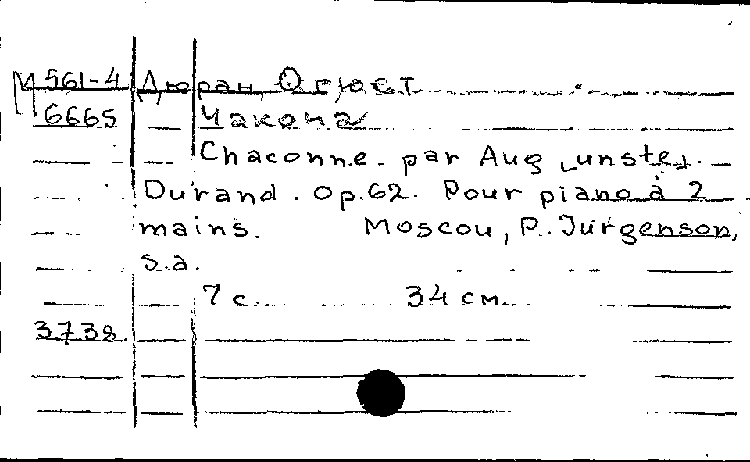 М 561-4 Дюран, Огюст
6665 Чакона
Chaconne par Aug
Durand. Op. 62. Pour piano à 2
mains. Moscou, P. Jurgenson,
s.a.
7 с. 34 см.
3738